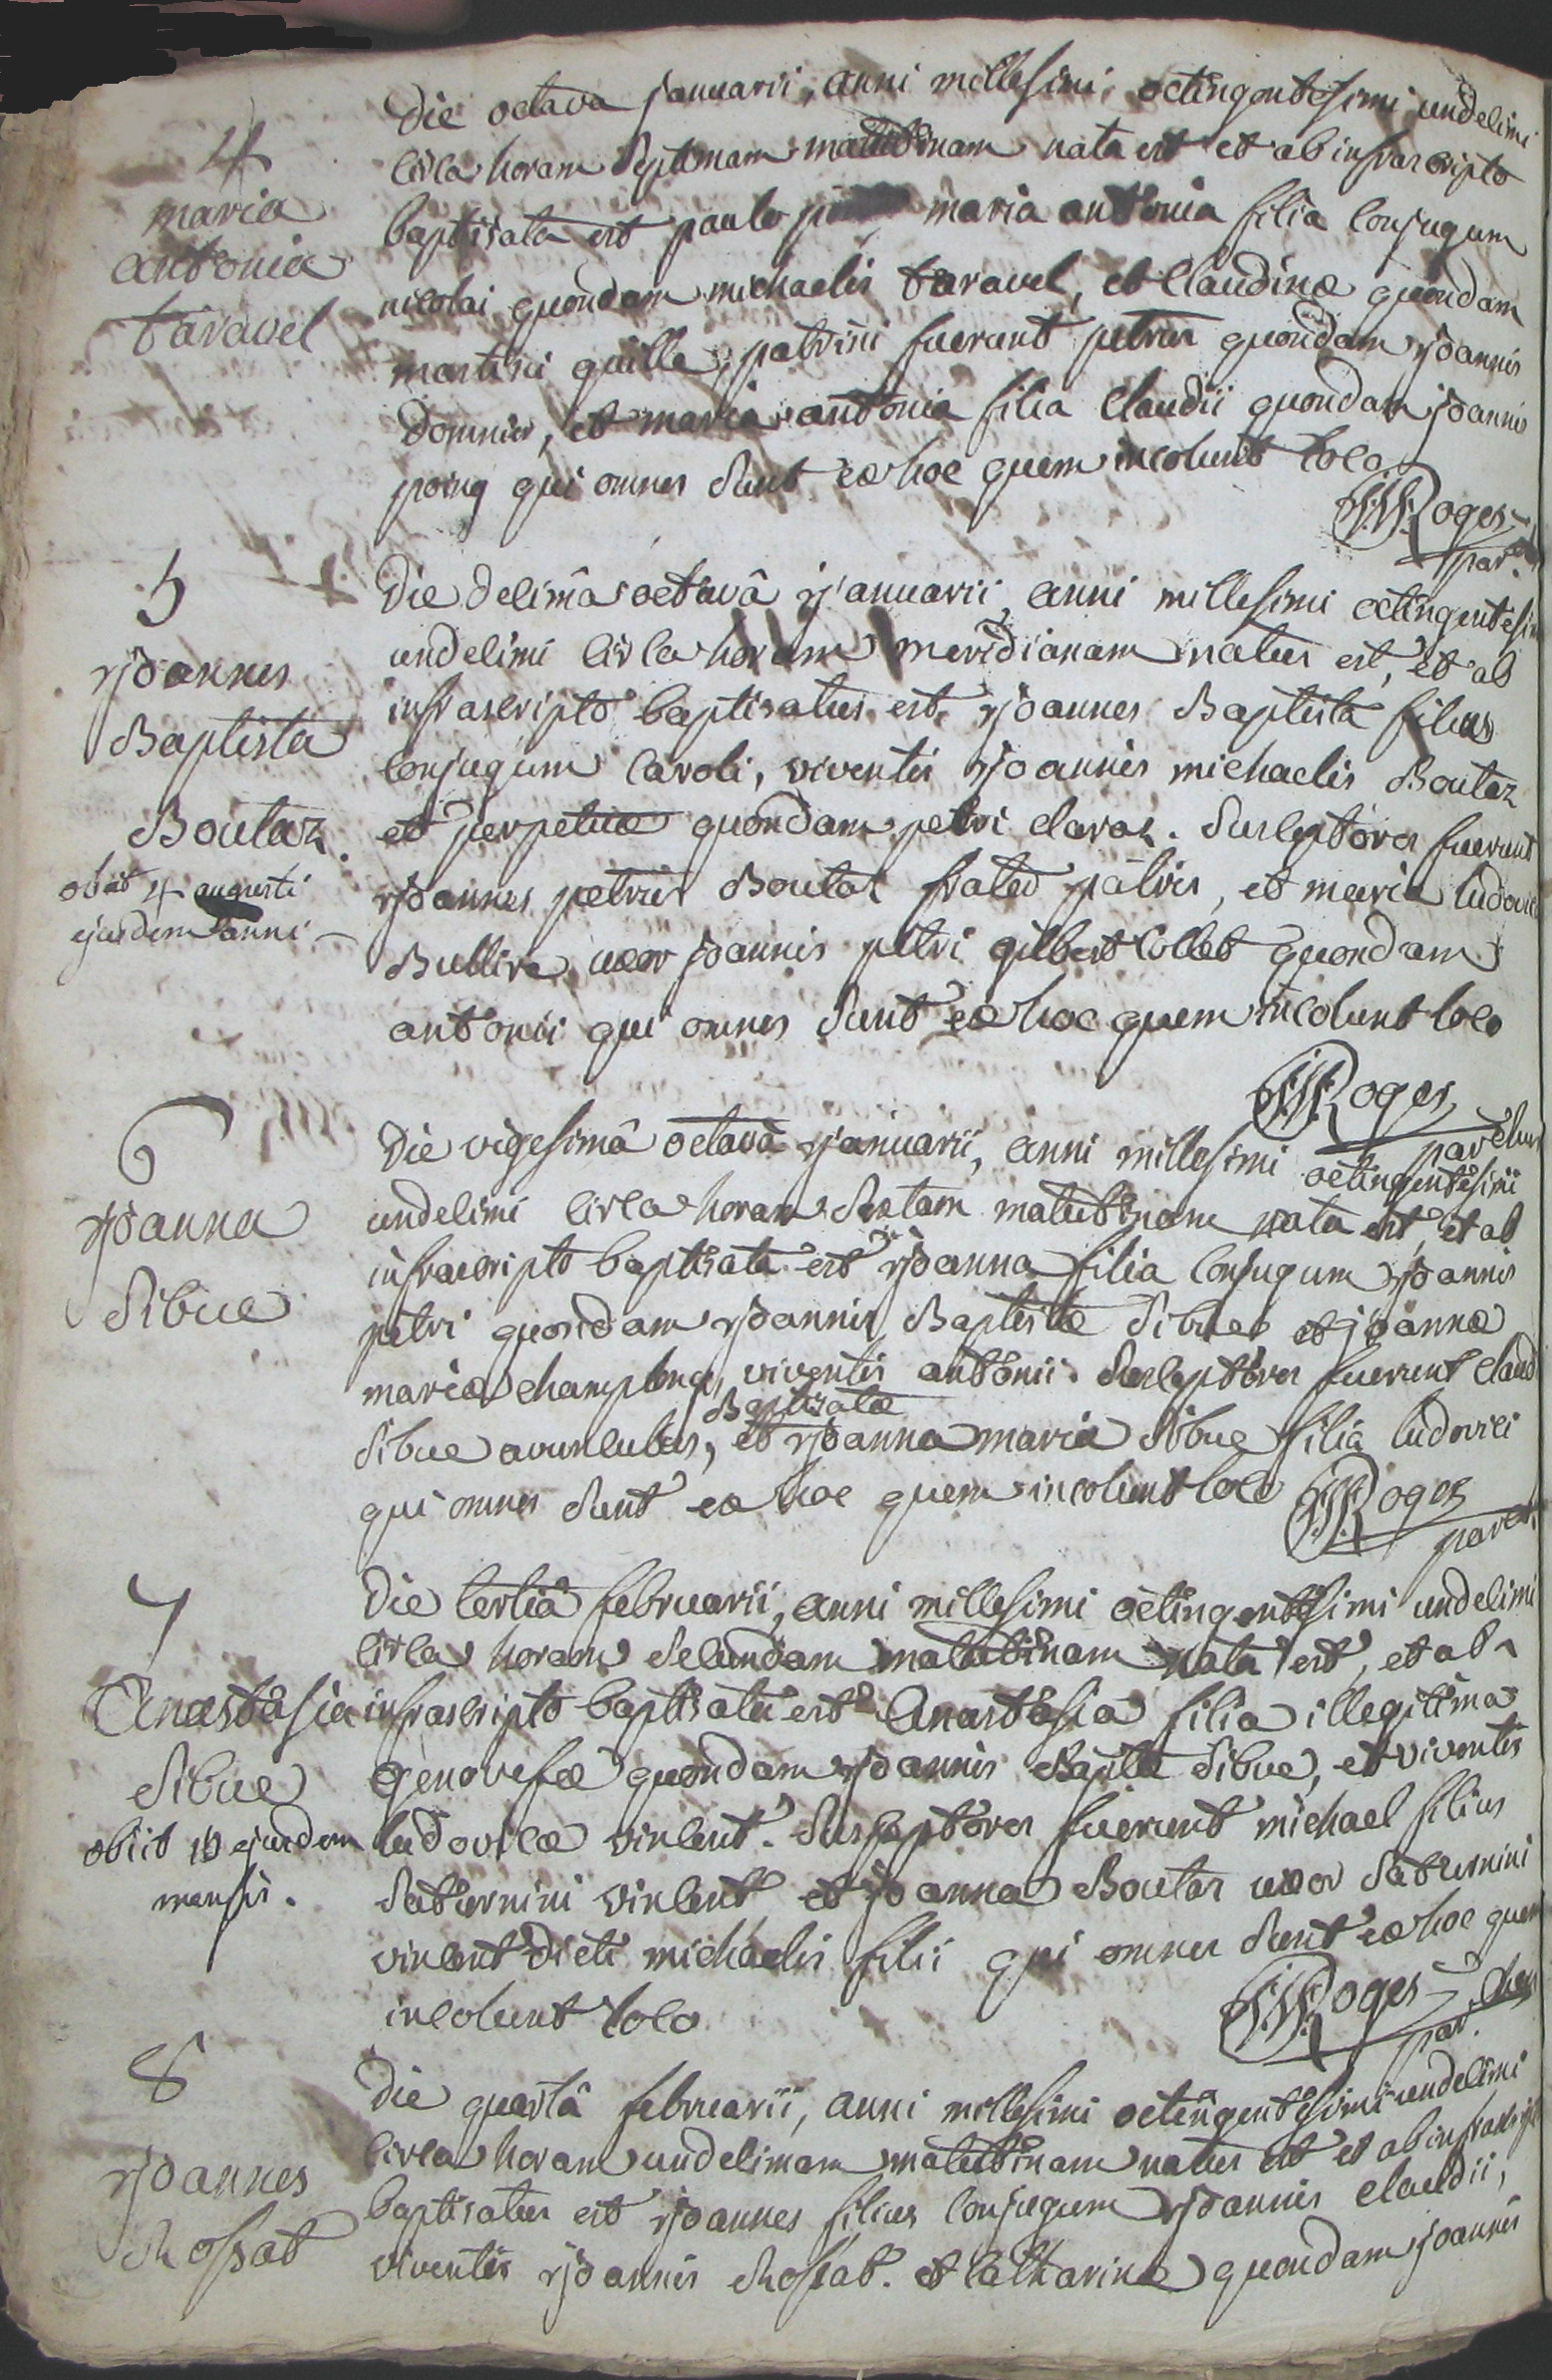 4
maria
antonia
taravel
Die octava januarii, anni millesimi, octingentesimi undecimi
circa horam septimam matutinam nata est et ab infrascripto
baptisata est paulo maria antonia filia conjugum
nicolai quondam michaelis taravel, et claudinæ quondam
martini guille, patrini fuerunt petrus quondam joannis
domnier, et maria antonia filia claudii quondam joannis
poing qui omnes sunt ex hoc quem incolunt loco
Roges
par.
5
joannes
Baptista
Boutaz
obiit 4 augusti
ejusdem anni
Die decimâ octavâ januarii, anni millesimi octingentesimi
undecimi circa horam meridianam natus est, et ab
infrascripto baptisatus est joannes Baptista filius
conjugum caroli, viventis joannis michaelis Boutaz
et perpetuæ quondam petri claraz. Susceptores fuerunt
joannes petrus Boutaz frater patris, et maria ludovica
uxor joannis petri gilbert collet quondam
antonii qui omnes sunt ex hoc quem incolunt loco
Roges
parochus
6
joanna
Sibue
Die vigesimâ octavâ januarii, anni millesimi octingentesimi
undecimi circa horam sextam matutinam nata est, et ab
infrascripto baptisata est joanna filia conjugum joannis
petri quondam joannis Baptistæ Sibue et joannæ
mariæ champlong, viventis antonii. Susceptores fuerunt claud
Baptisatæ
Sibue avunculus, et joanna maria Sibue filia ludovici
qui omnes sunt ex hoc quem incolunt loco Roges
paroch.
7
Anastasia
Sibue
obiit 10 ejusdem
mensis.
Die tertiâ februarii, anni millesimi octingentesimi undecimi
circa horam secundam matutinam nata est, et ab
infrascripto baptisata est Anastasia filia illegitima
genovefæ quondam joannis Baptæ Sibue, et viventis
ludovicæ vincent. Susceptores fuerunt michael filius
Saturnini vincent et joanna Boutaz uxor Saturnini
vincent dicti michaelis filii qui omnes sunt ex hoc quem
incolunt loco
Roges
par. chus
8
joannes
Rossat
Die quartâ februarii, anni millesimi octingentesimi undecimi
circa horam undecimam matutinam natus est et ab infrascripto
baptisatus est joannes filius conjugum joannis claudii,
viventis joannis Rossat. et catharinæ quondam joannis